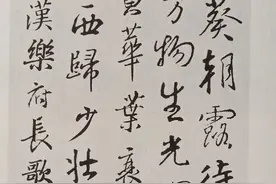 葵朝露待
方物生光
華葉衰
西歸少壯
漢樂府長歌